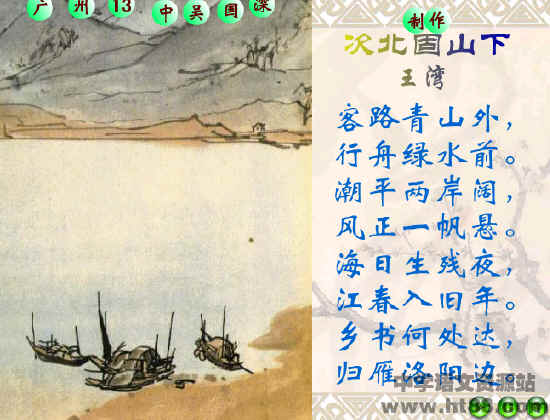 广州13中吴国深制作
次北固山下
王湾
客路青山外，
行舟绿水前。
潮平两岸阔，
风正一帆悬。
海日生残夜，
江春入旧年。
乡书何处达，
归雁洛阳边。
中学语文资源站